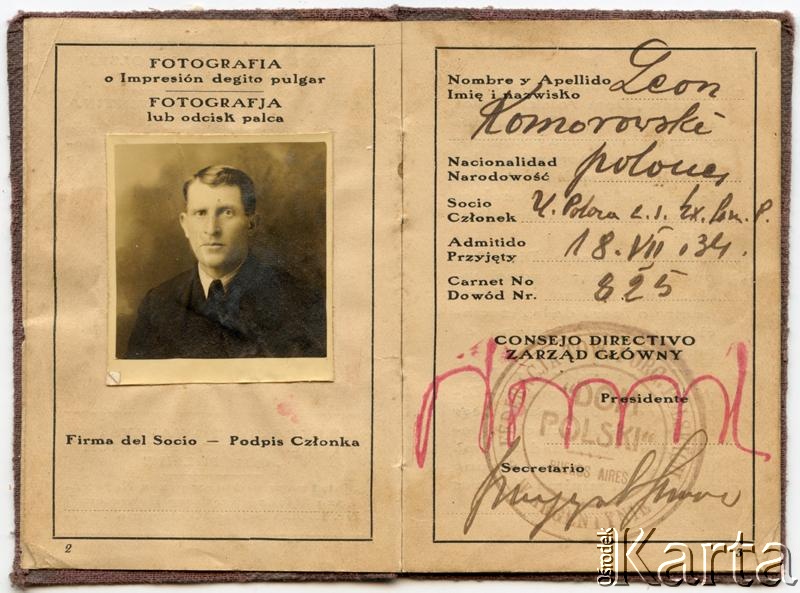 FOTOGRAFIA
o Impresión degito pulgar
FOTOGRAFJA
lub odcisk palca
Firma del Socio — Podpis Członka
2
Nombre y Apellido Leon
Imię i nazwisko
Komorowski
Nacionalidad
Narodowość
Socio
Członek
Admitido
Przyjęty 18.VII.34.
Carnet No
Dowód Nr. 825
CONSEJO DIRECTIVO
ZARZĄD GŁÓWNY
Presidente
"DOM
POLSKI"
BUENOS AIRES
Secretario
3
Ośrodek
Karta